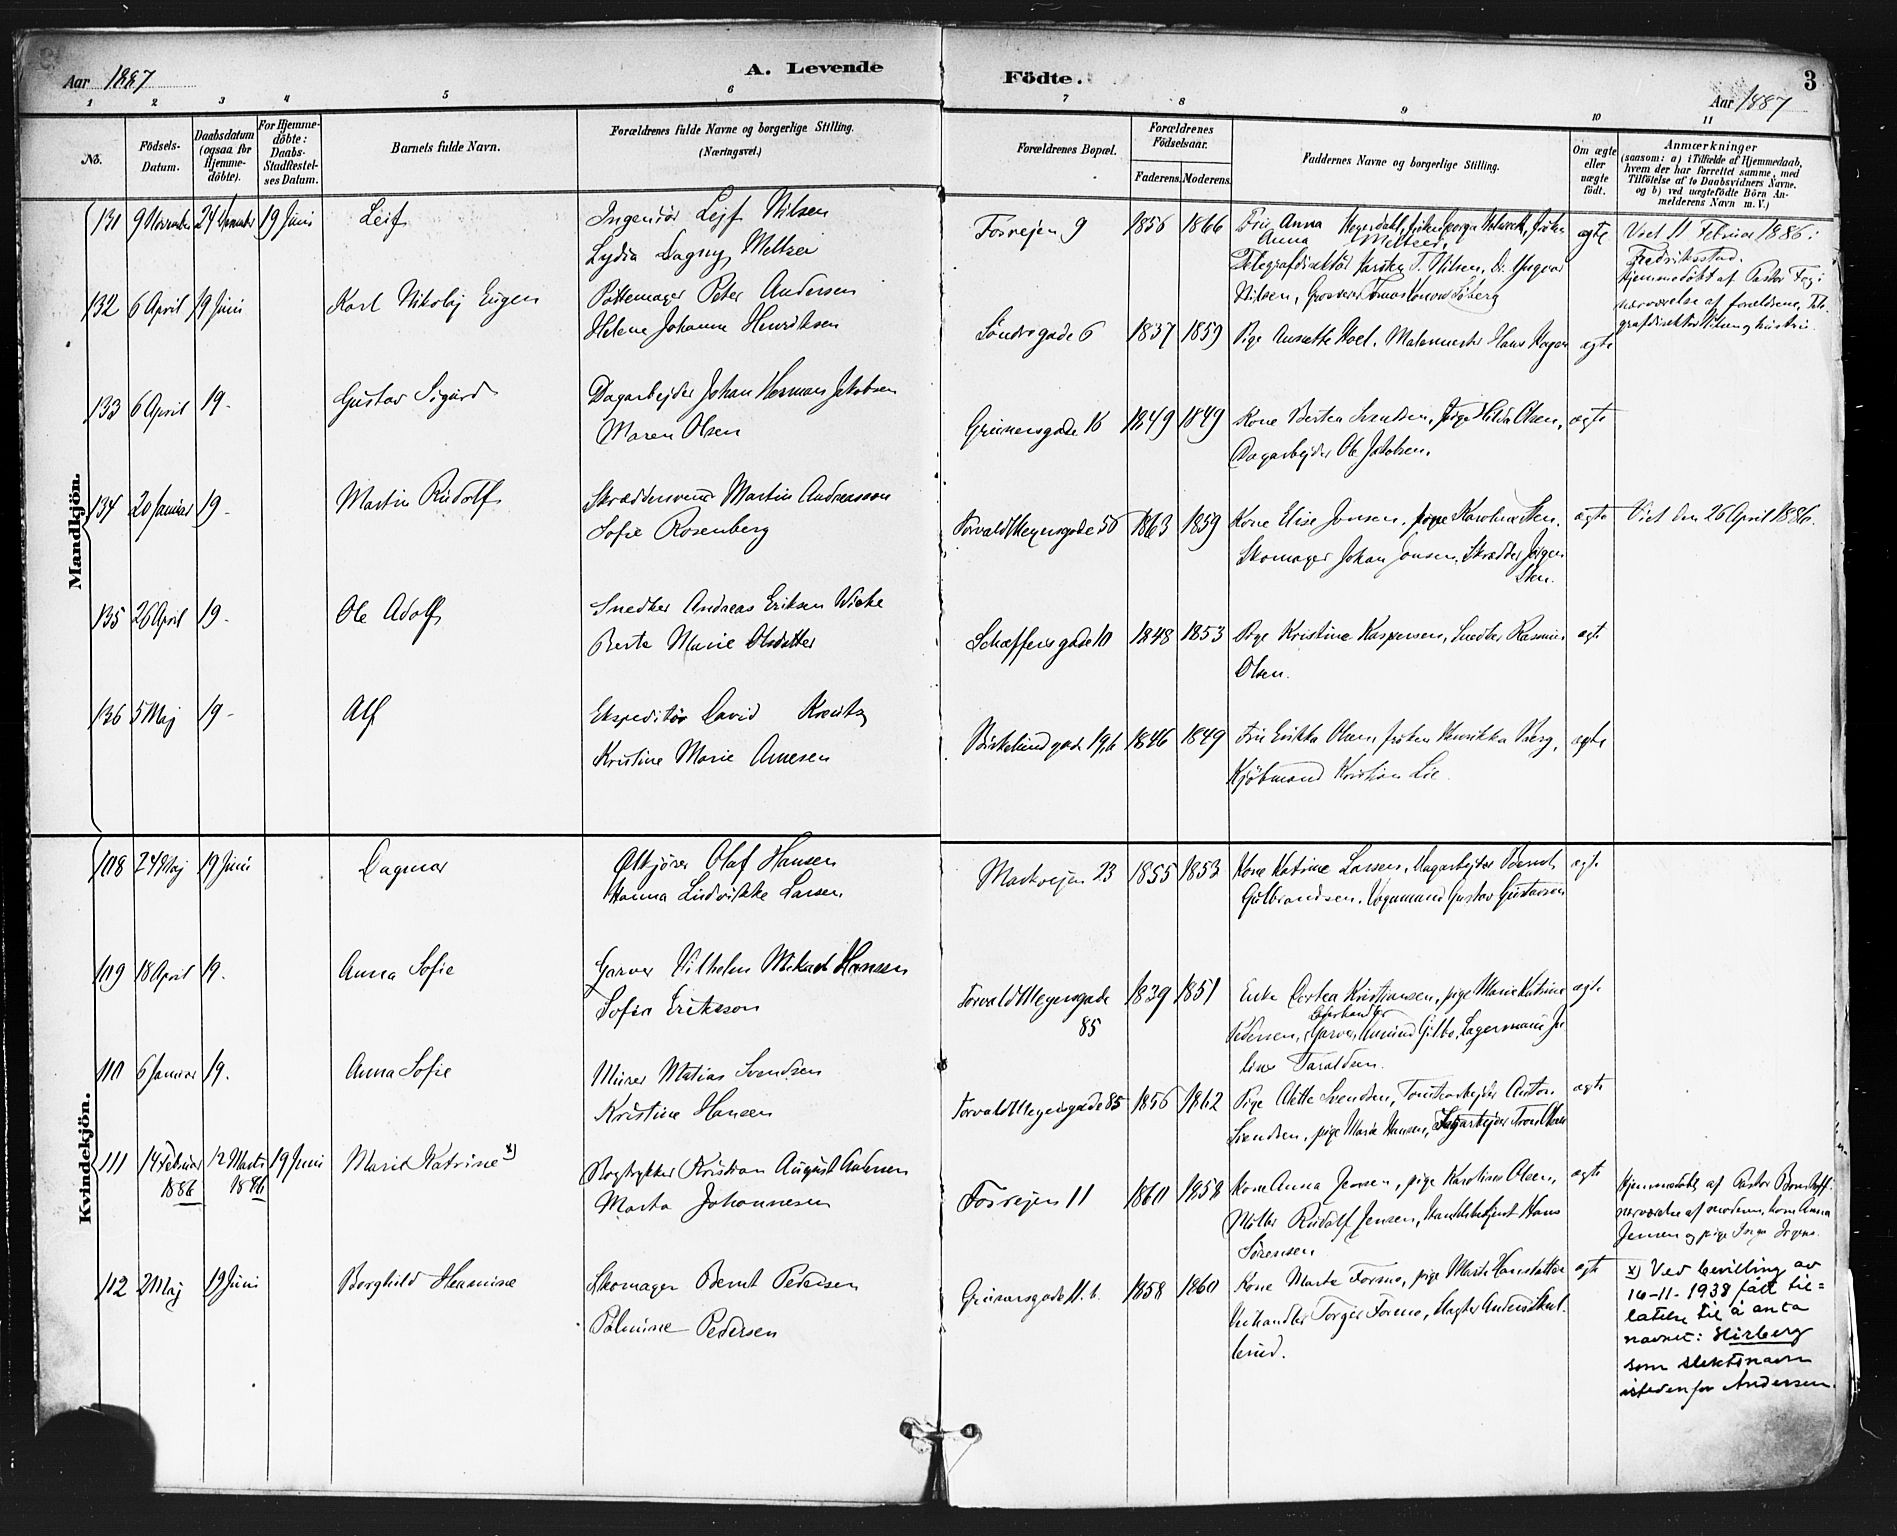 Aar 1887
A. Levende
Födte.
3
Aar 1887
1 2 3 4 5 6 7 8 9 10 11
No.
Födsels-Datum.
Daabsdatum (ogsaa for Hjemme-döbte).
For Hjemme-döbte: Daabs-Stadfæstel-ses Datum.
Barnets fulde Navn.
Forældrenes fulde Navne og borgerlige Stilling.
(Næringsvei.)
Forældrenes Bopæl.
Forældrenes Födselsaar.
Faderens. Moderens.
Faddernes Navne og borgerlige Stilling.
Om ægte eller uægte födt.
Anmærkninger
(saasom: a) i Tilfælde af Hjemmedaab, hvem der har forrettet samme, med Tilföielse af to Daabsvidners Navne, og b) ved uægtefödte Börn An-melderens Navn m. V.)
Mandkjön.
131 9 November 19 Juni Leif
Ingeniör Leif Nilsen
Lydia Dagny Meltzer
Fosvejen 9 1856 1866
Frue Anna
Anna Meltzer,
Telegrafdirektör T. Nilsen, Dr. Yngvar
Nilsen, Grosserer
ægte
Viet 11 Februar 1886 i
Fredriksstad.
Hjemmedöbt af Pastor
nærværelse af forældrene, Tele-
grafdirektör Nilsen og hustru.
132 6 April 19 Juni Karl Nikolaj Eugen
Pottemager Peter Andersen
Helene Johanne Henriksen
Söndregade 6 1837 1859
Pige Ansette Hoel, Malermester Hans Hagen
ægte
133 6 April 19. Gustav Sigurd
Dagarbejder Johan Herman Jakobsen
Maren Olsen
Grünersgade 16 1849 1849
Kone Bertea Svendsen, pige Hilda Olsen,
Dagarbejder Ole Jakobsen.
ægte
134 20 Januar 19. Martin Rudolf
Skræddersvend Martin Andreassen
Sofie Rosenberg
Torvald Meyersgade 56 1863 1859
Kone Elise Jonsen, pige Karoline Sten.
Skomager Johan Jonsen, Skrædder Jörgen
Sten.
ægte
Viet den 26 April 1886.
135 26 April 19. Ole Adolf
Snedker Andreas Eriksen Wiche
Berte Marie Olsdatter
Schæffersgade 10 1848 1853
Pige Kristine Kaspersen, Snedker Rasmus
Olsen.
ægte
136 5 Maj 19. Alf
Ekspeditör David
Kristine Marie Arnesen
Birkelundgade 19b 1846 1849
Frue Erikka Olsen, fröken Henrikka
Kjöbmand Kristian Lie.
ægte
Kvindekjön.
108 24 Maj 19 Juni Dagmar
Ölkjörer Olaf Hansen
Hanna Ludvikke Larsen
Markvejen 23 1855 1853
Kone Katrine Larsen, Dagarbejder Bernt
Gulbrandsen, Vognmand Gustav Gustavsen
ægte
109 18 April 19. Anna Sofie
Garver Vilhelm Mikael Hansen
Sofie Eriksson
Torvald Meyersgade 85 1839 1851
Enke Dortea Kristiansen, pige Marie Katrine
Pedersen, Garver Amund Gilbo, Lagermand Ju-
lius Taraldsen.
ægte
110 6 Januar 19. Anna Sofie
Murer Matias Svendsen
Kristine Hansen
Torvald Meyersgade 85 1856 1862
Pige Alette Svendsen, Tomtearbejder Anton
Svendsen, pige Marie Hansen,
ægte
111 14 Februar 1886 12 Marts 1886 19 Juni Marit Katrine x)
Bogtrykker Kristian August Andersen
Marta Johannesen
Fosvejen 11 1860 1858
Kone Anna Jensen, pige Karoline Olsen,
Möller Rudolf Jensen, Handelsbetjent Hans
Sörensen
ægte
Hjemmedöbt af Pastor
nærværelse af moderen, kone Anna
Jensen og pige
112 2 Maj 19 Juni Borghild Hermine
Skomager Bernt Pedersen
Palmine Pedersen
Grünersgade 11.b. 1858 1860
Kone Marte Forsmo, pige Marte Hansdatter
Torger Forsmo, Slagter
ægte
x) Ved bevilling av
10-11-1938 fått til=
latelse til å anta
navnet: Hisberg
som slektsnavn
istedenfor Andersen.